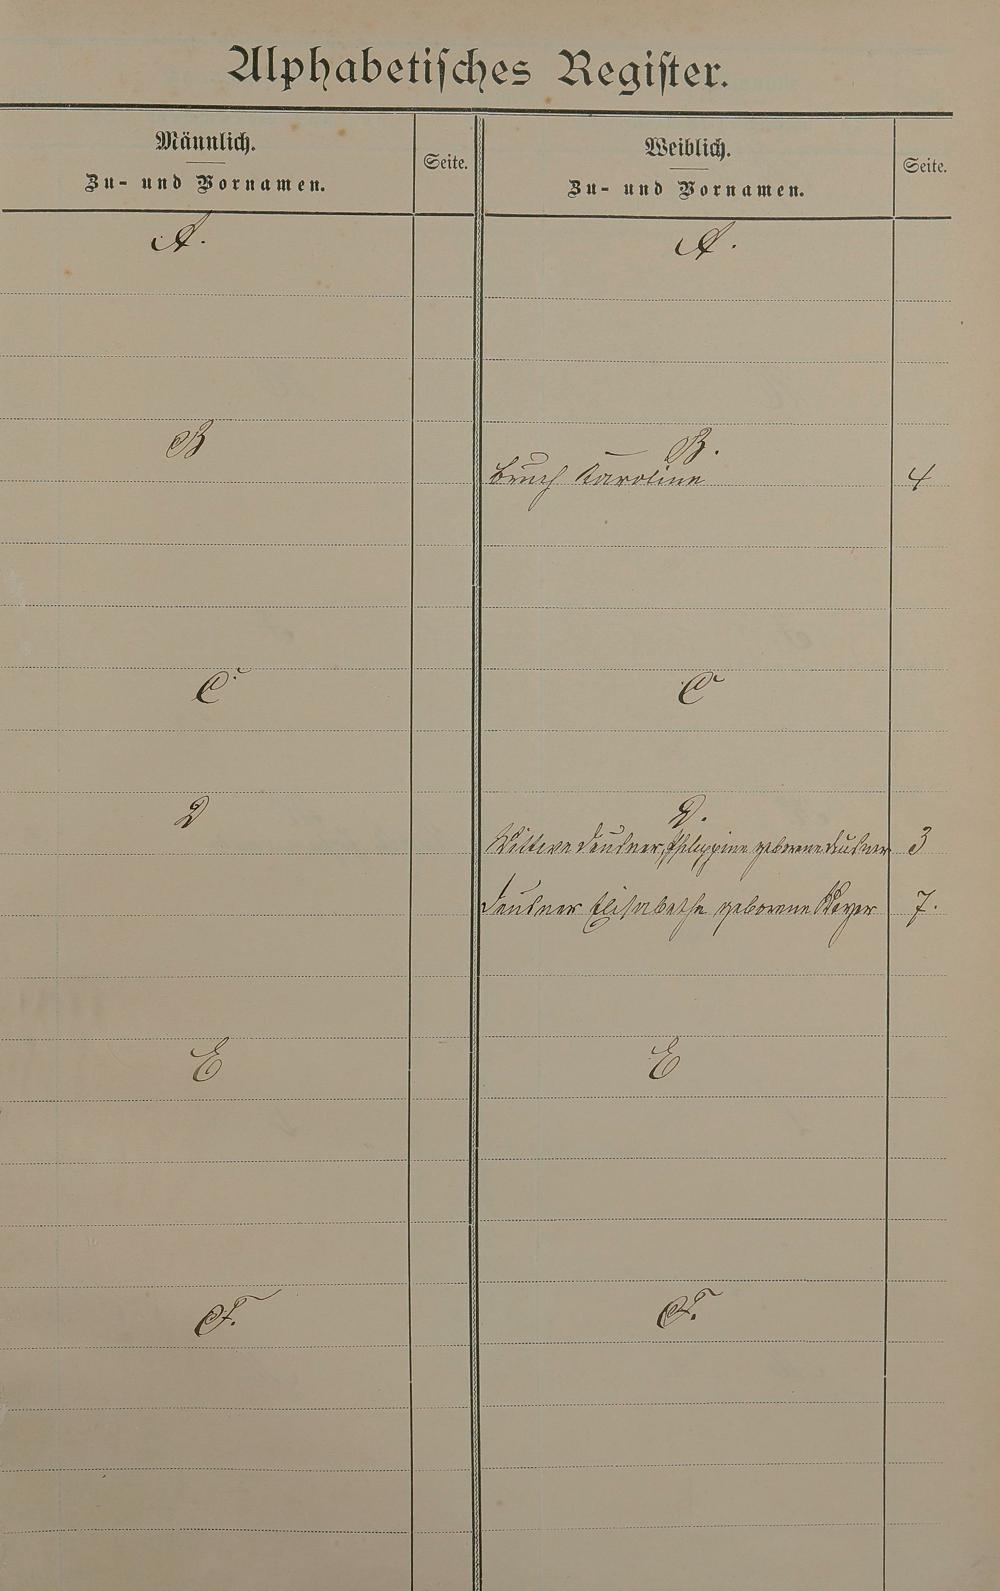 Alphabetisches Register.
Männlich.
Zu- und Vornamen.
Seite.
Weiblich.
Zu- und Vornamen.
Seite.
A.
A.
B
B.
Bruch Karoline 4
C
C
D
D.
Wittwe Deubner, Philippine geborene Deubner 3
Deubner Elisabetha geborene Mayer 7.
E
E
F.
F.